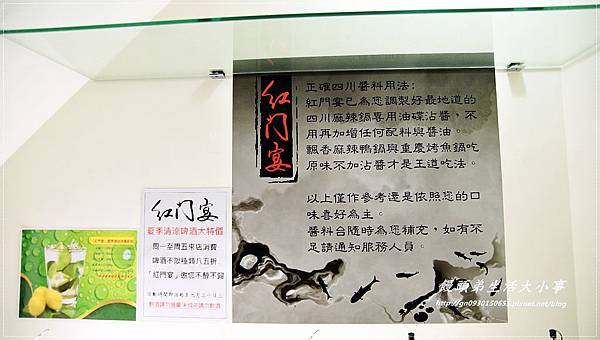 紅門宴
正確四川醬料用法:
紅門宴已為您調製好最地道的
四川麻辣鍋專用油碟沾醬,不
用再加增任何配料與醬油。
飄香麻辣鴨鍋與重慶烤魚鍋吃
原味不加沾醬才是王道吃法。
以上僅作參考還是依照您的口
味喜好為主。
醬料台隨時為您補充,如有不
足請通知服務人員。
紅門宴
夏季清涼啤酒大特價
周一至周五來店消費
啤酒不限種類八五折,
「紅門宴」邀您不醉不歸
飲酒請勿過量 未成年請勿飲酒
饅頭弟生活大小事
http://gn0930150653.pixnet.net/blog